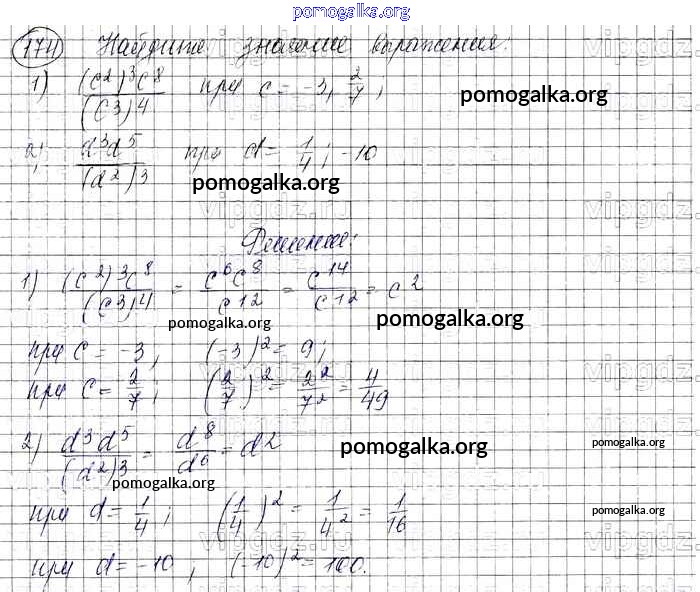 pomogalka.org
174 Найдите значение выражения:
1) (c²)³c⁸/(c³)⁴ при c = -3, 2/7; pomogalka.org
2) d³d⁵/(d²)³ при d = 1/4; -10
pomogalka.org
Решение:
1) (c²)³c⁸/(c³)⁴ = c⁶c⁸/c¹² = c¹⁴/c¹² = c²
pomogalka.org pomogalka.org
при c = -3, (-3)² = 9;
при c = 2/7; (2/7)² = 2²/7² = 4/49
2) d³d⁵/(d²)³ = d⁸/d⁶ = d² pomogalka.org pomogalka.org
pomogalka.org
при d = 1/4; (1/4)² = 1/4² = 1/16 pomogalka.org
при d = -10, (-10)² = 100.
vipgdz.ru